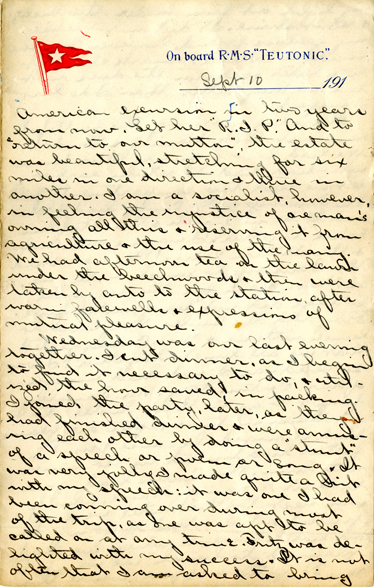 On board R·M·S·"TEUTONIC."
Sept 10 191
American excursion in two years
from now. Let her "R.I.P." And to
"return to our mutton", the estate
was beautiful, stretching for six
miles in one direction & three in
another. I am a socialist, however,
in feeling the injustice of one man's
owning all this & reserving it from
agriculture & the use of the many.
We had afternoon tea at the
under the beechwoods & then were
taken by auto to the station, after
warm farewells & expressions of
mutual pleasure.
Wednesday was our last evening
together. I cut dinner, as I began
to find it necessary to do, & util-
ized the hour saved in packing.
I joined the party later, as they
had finished dinner & were amus-
ing each other by doing a "stunt"
of a speech or poem or song. It
was very jolly. I made quite a hit
with my speech: it was one I had
been conning over during most
of the trip, as one was apt to be
called on at any time & I was de-
lighted with my success. It is not
often that I am asked to bring